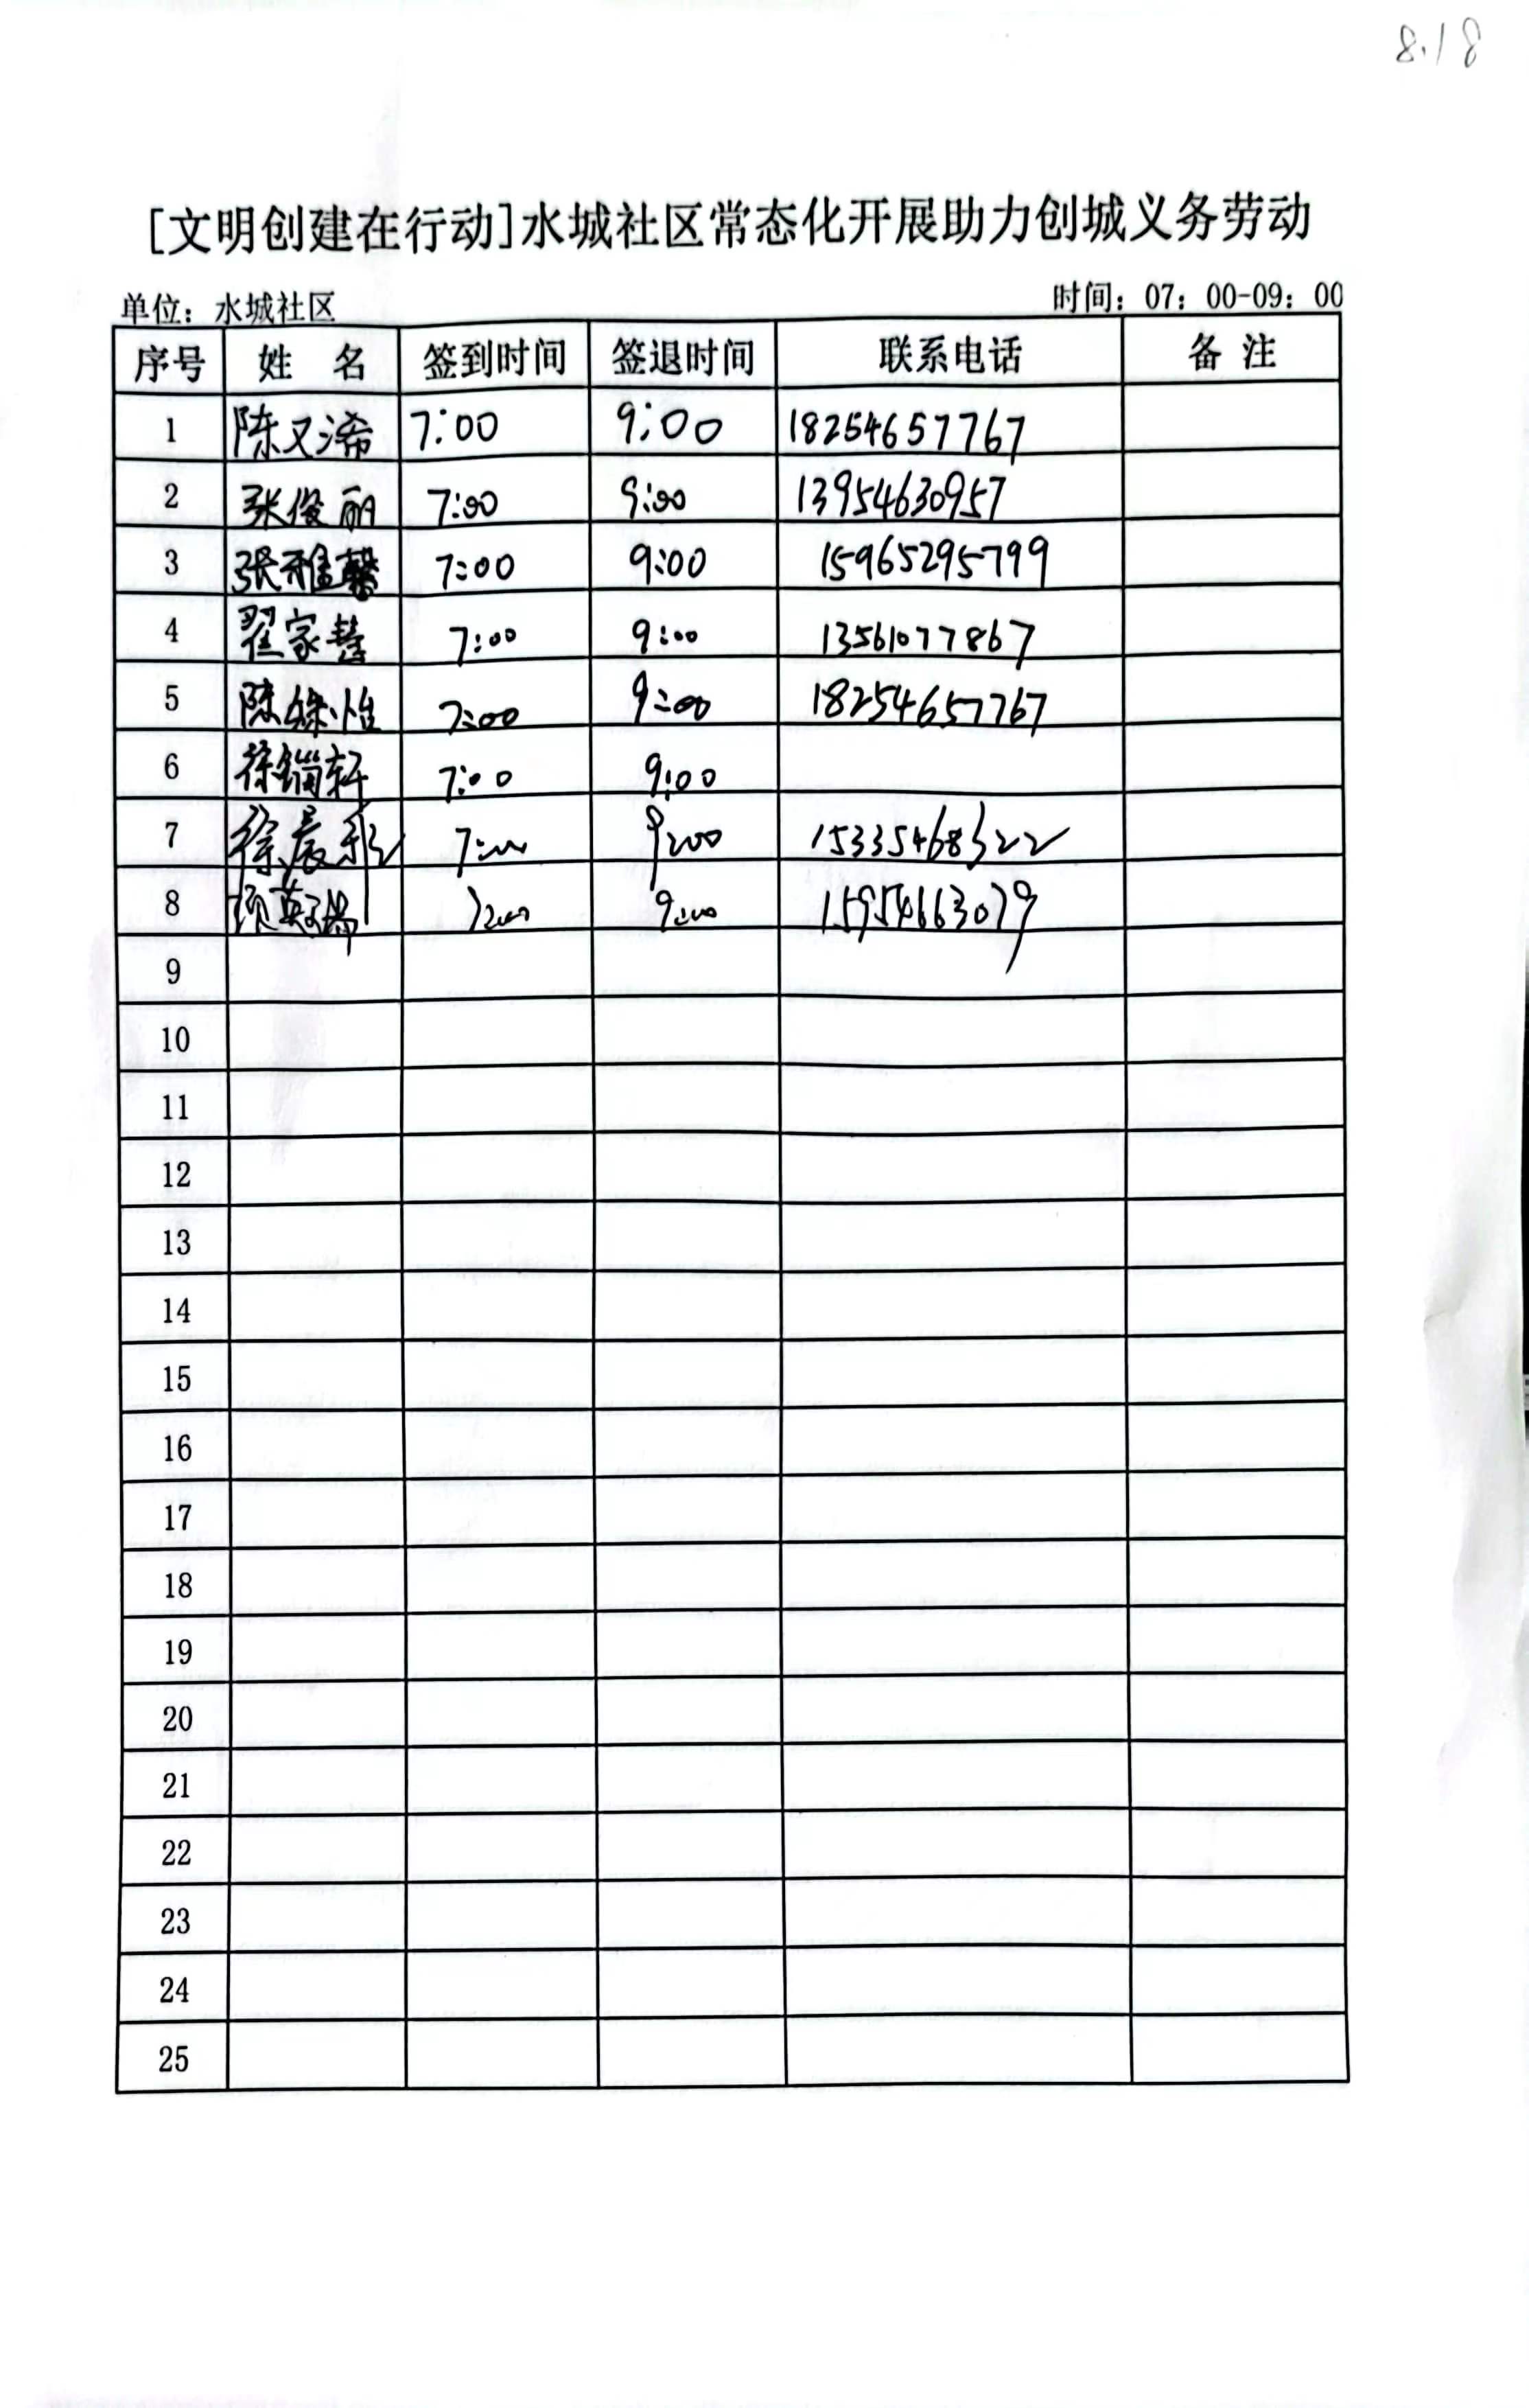 8.18
[文明创建在行动]水城社区常态化开展助力创城义务劳动
单位：水城社区 时间：07：00-09：00
序号 姓 名 签到时间 签退时间 联系电话 备 注
1 陈又浠 7:00 9:00 18254657767
2 张俊丽 7:00 9:00 13954630957
3 张雅馨 7:00 9:00 15965295799
4 翟家慧 7:00 9:00 13561077867
5 陈姝怡 7:00 9:00 18254657767
6 徐 轩 7:00 9:00
7 徐晨 7:00 9:00 15335468322
8 7:00 9:00 15954663079
9
10
11
12
13
14
15
16
17
18
19
20
21
22
23
24
25